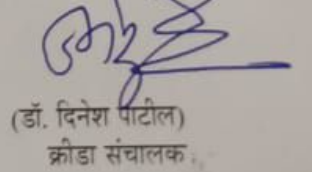 (डॉ. दिनेश पाटील)
क्रीडा संचालक